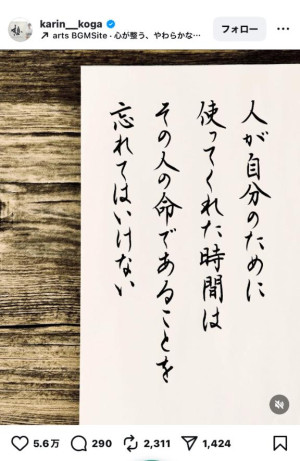 karin__koga
arts BGMSite・心が整う、やわらかな…
フォロー
人が自分のために
使ってくれた時間は
その人の命であることを
忘れてはいけない
5.6万
290
2,311
1,424